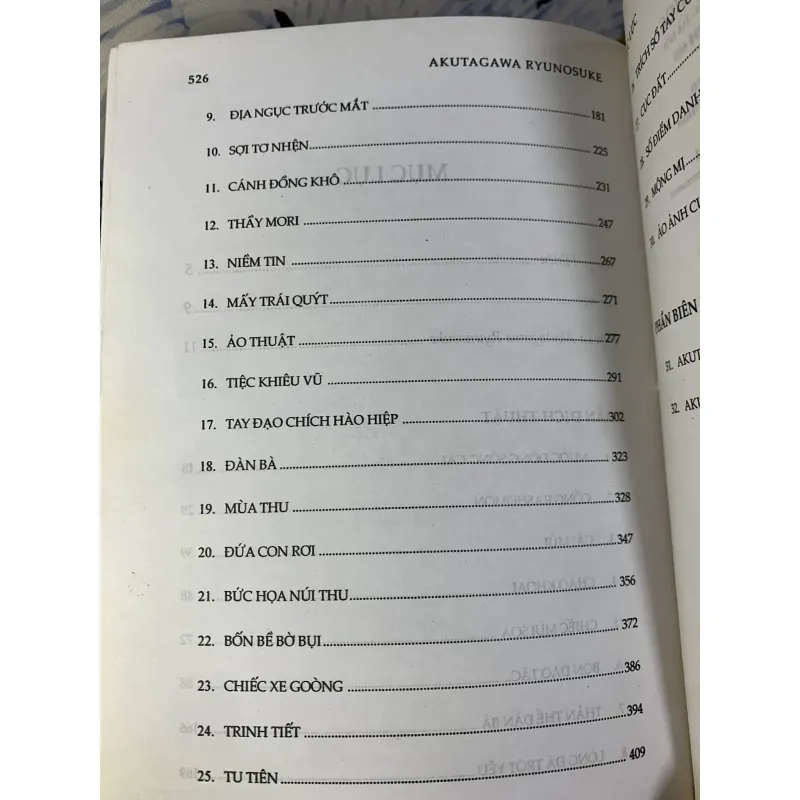 526 AKUTAGAWA RYUNOSUKE
9. ĐỊA NGỤC TRƯỚC MẮT 181
10. SỢI TƠ NHỆN 225
11. CÁNH ĐỒNG KHÔ 231
12. THẦY MORI 247
13. NIỀM TIN 267
14. MẤY TRÁI QUÝT 271
15. ẢO THUẬT 277
16. TIỆC KHIÊU VŨ 291
17. TAY ĐẠO CHÍCH HÀO HIỆP 302
18. ĐÀN BÀ 323
19. MÙA THU 328
20. ĐỨA CON RƠI 347
21. BỨC HỌA NÚI THU 356
22. BỐN BỀ BỜ BỤI 372
23. CHIẾC XE GOÒNG 386
24. TRINH TIẾT 394
25. TU TIÊN 409
TRÍCH SỔ TAY
CỤC ĐẤT
SỔ ĐIỂM DANH
29. MỘNG MỊ
30. ẢO ẢNH
PHẦN BIÊN
31. AKUT
32. AK